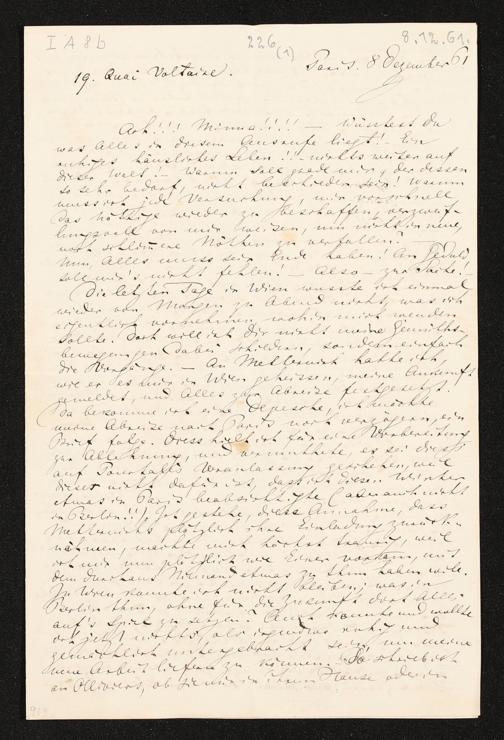 I A 8b
226 (1)
8.12.61.
19. Quai Voltaire.
Paris. 8 Dezember 61
Ach!!! Minna!!!! — wüsstest du
was Alles in diesem Ausrufe liegt! Ein
ruhiges häusliches Leben!! — nichts weiter auf
dieser Welt! — Warum soll grade mir, der dessen
so sehr bedarf, nicht beschieden sein! Warum
muss ich jede Versuchung, mir vorschnell
das Nöthige wieder zu verschaffen, verzweif-
lungsvoll von mir weisen, um nicht in neue,
noch schlimmere Nöthen zu verfallen.
Nun, Alles muss sein Ende haben! An Geduld
soll mir's nicht fehlen! — Also — zur Sache! —
Die letzten Tage in Wien wusste ich einmal
wieder von Morgen zu Abend nicht, was ich
eigentlich vornehmen, wohin mich wenden
sollte. Doch will ich Dir nicht meine Gemüths-
bewegungen dabei schildern, sondern einfach
die Vorgänge. — An Metternich hatte ich,
wie er es mir in Wien geheissen, meine Ankunft
gemeldet, und Alles zur Abreise festgesetzt.
Da bekomme ich eine Depesche, ich möchte
meine Abreise nach Paris noch verzögern, ein
Brief folge. Diess hielt ich für eine Vorbereitung
zur Ablehnung, und vermuthete, es sei diess
auf Pourtalès Veranlassung geschehen, weil
dieser nicht dafür ist, dass ich diesen Winter
etwas in Paris beabsichtige (aber auch nicht
in Berlin!!). Ich gestehe, diese Annahme, dass
Metternichs plötzlich ohne Einladung zurück-
nähmen, machte mich höchst traurig, weil
ich mir nun plötzlich wie Einer vorkam, mit
dem durchaus Niemand etwas zu thun haben wolle.
In Wien konnte ich nicht bleiben; was in
Berlin thun, ohne für die Zukunft dort Alles
auf's Spiel zu setzen? Auch konnte und wollte
ich jetzt nichts, als irgendwo ruhig und
gemächlich untergebracht sein, um meine
neue Arbeit liefern zu können. So schrieb ich
an Olliviers, ob sie mir in ihrem Hause oder in